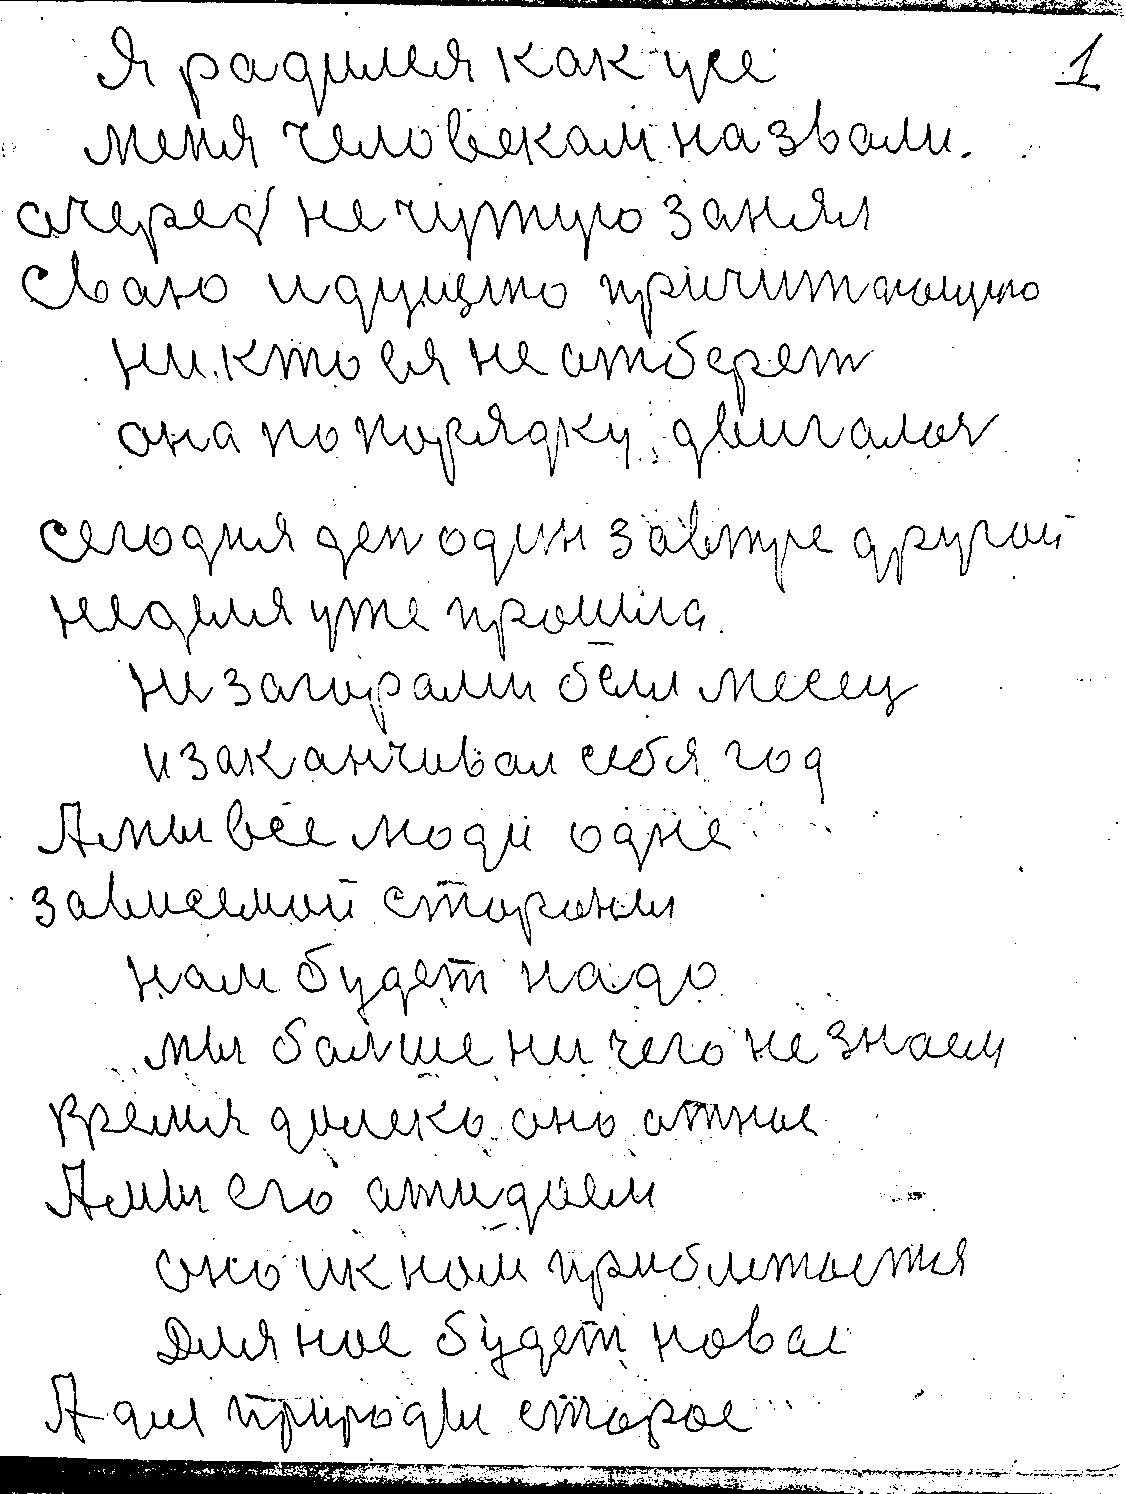 Я радился как усе 1
меня человекам назвали.
очередь не чужую занял
Сваю идущую причитающую
ни кто ея не отберет
она по порядку двигалася
сегодня ден один завтре другой
неделя уже прошла
не загорами бели месец
и заканчивал себя год
А мы все люди одне
зависемой стороны
нам будет надо
мы балше ни чего не знаем
время далеко оно от нас
А мы его ожидаем
оно и к нам приближается
Для нас будет новае
А для природы старое